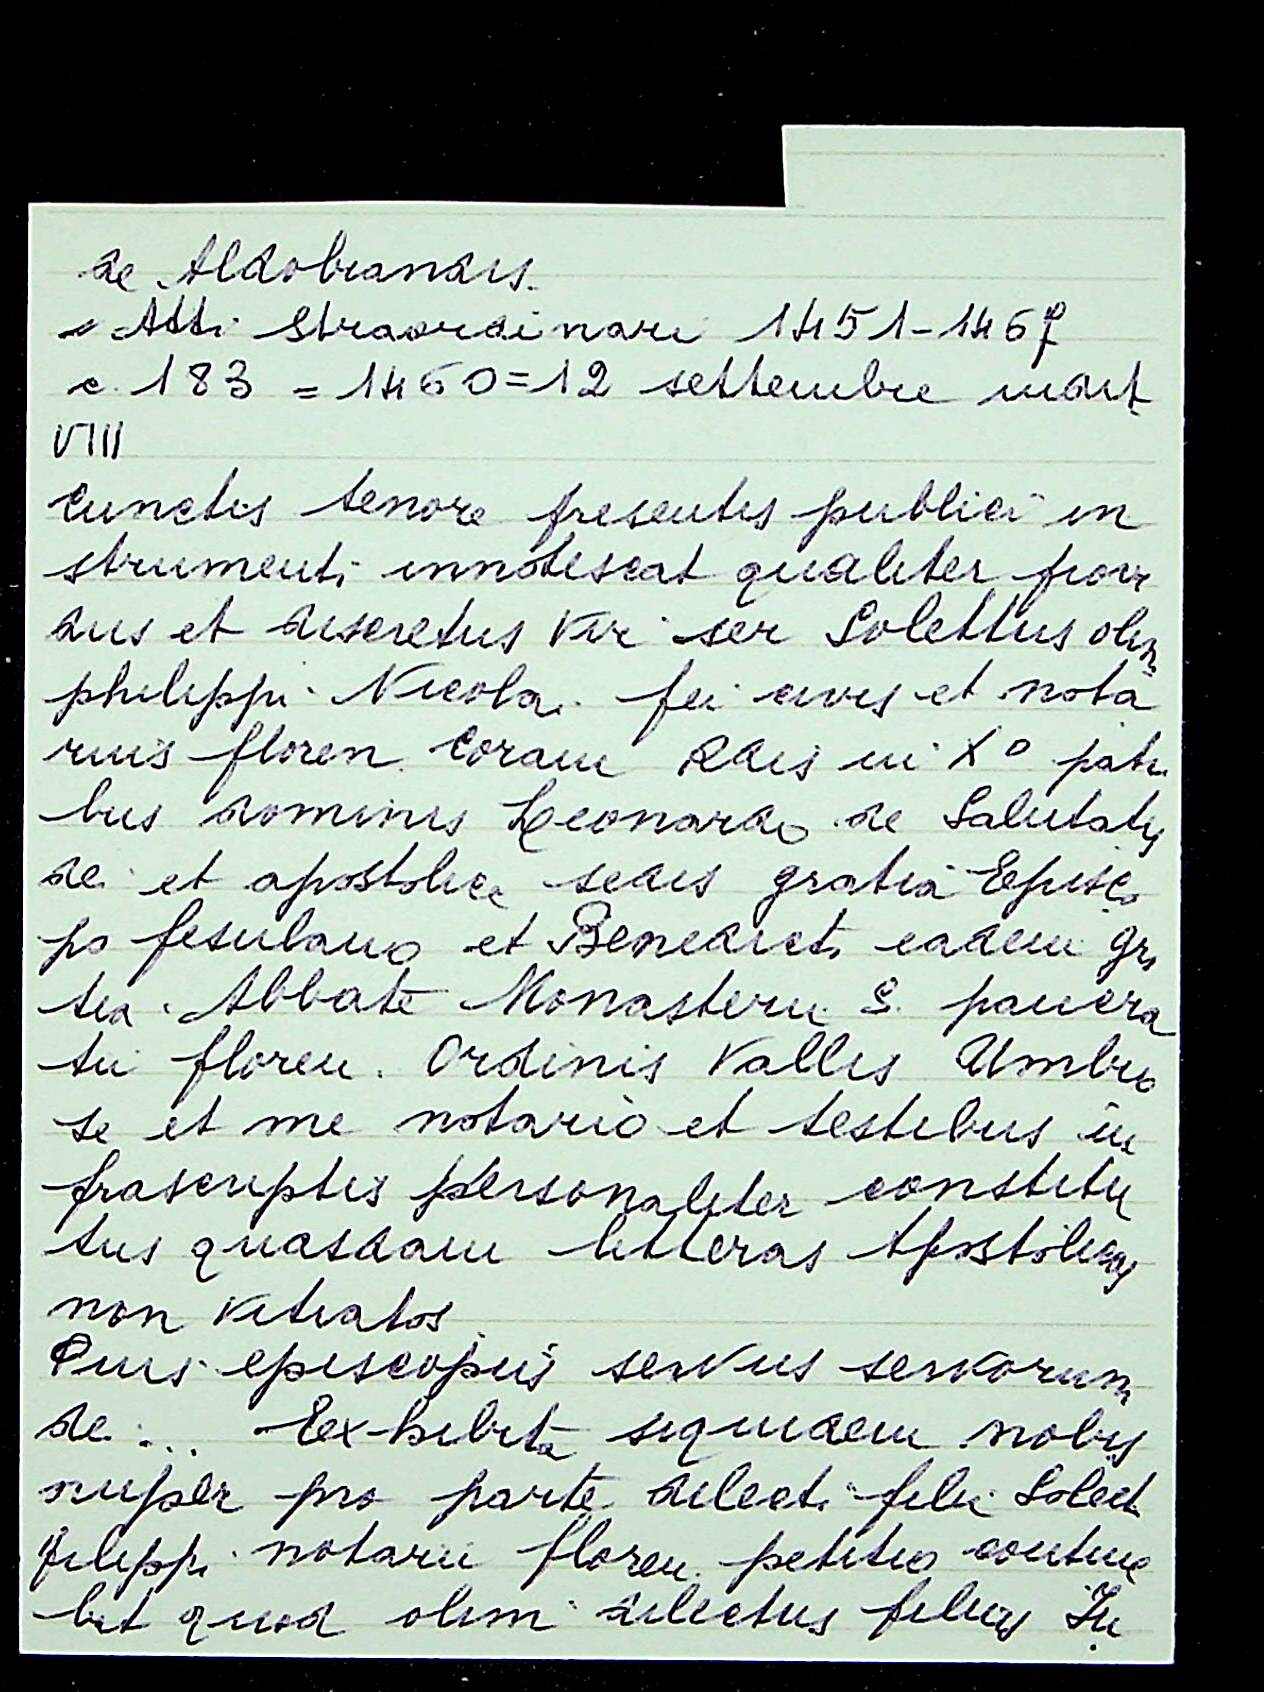 de Aldobrandis.
Atti Straordinari 1451-1467
c. 183 = 1460 = 12 settembre indit
VIII
Cunctis tenore presentis publici in
strumenti innotescat qualiter provi
dus et discretus vir ser Solettus olim
philippi Nicolai fei civis et nota
rius floren. coram Rdis in Xo patri
bus dominis Leonardo de Salutatis
dei et apostolice sedis gratia Episco
po fesulano et Benedicti eadem gra
tia Abbate Monasterii S. pancra
tii floren. Ordinis Vallis Umbro
se et me notario et testibus in
frascriptis personaliter constitu
tus quasdam litteras Apostolicas
non vitiatas
Pius episcopus servus servorum
dei ... Exhibita siquidem nobis
nuper pro parte dilecti filii Solect
filippi notarii floren. petitio contine
bat quod olim dilectus filius Ju